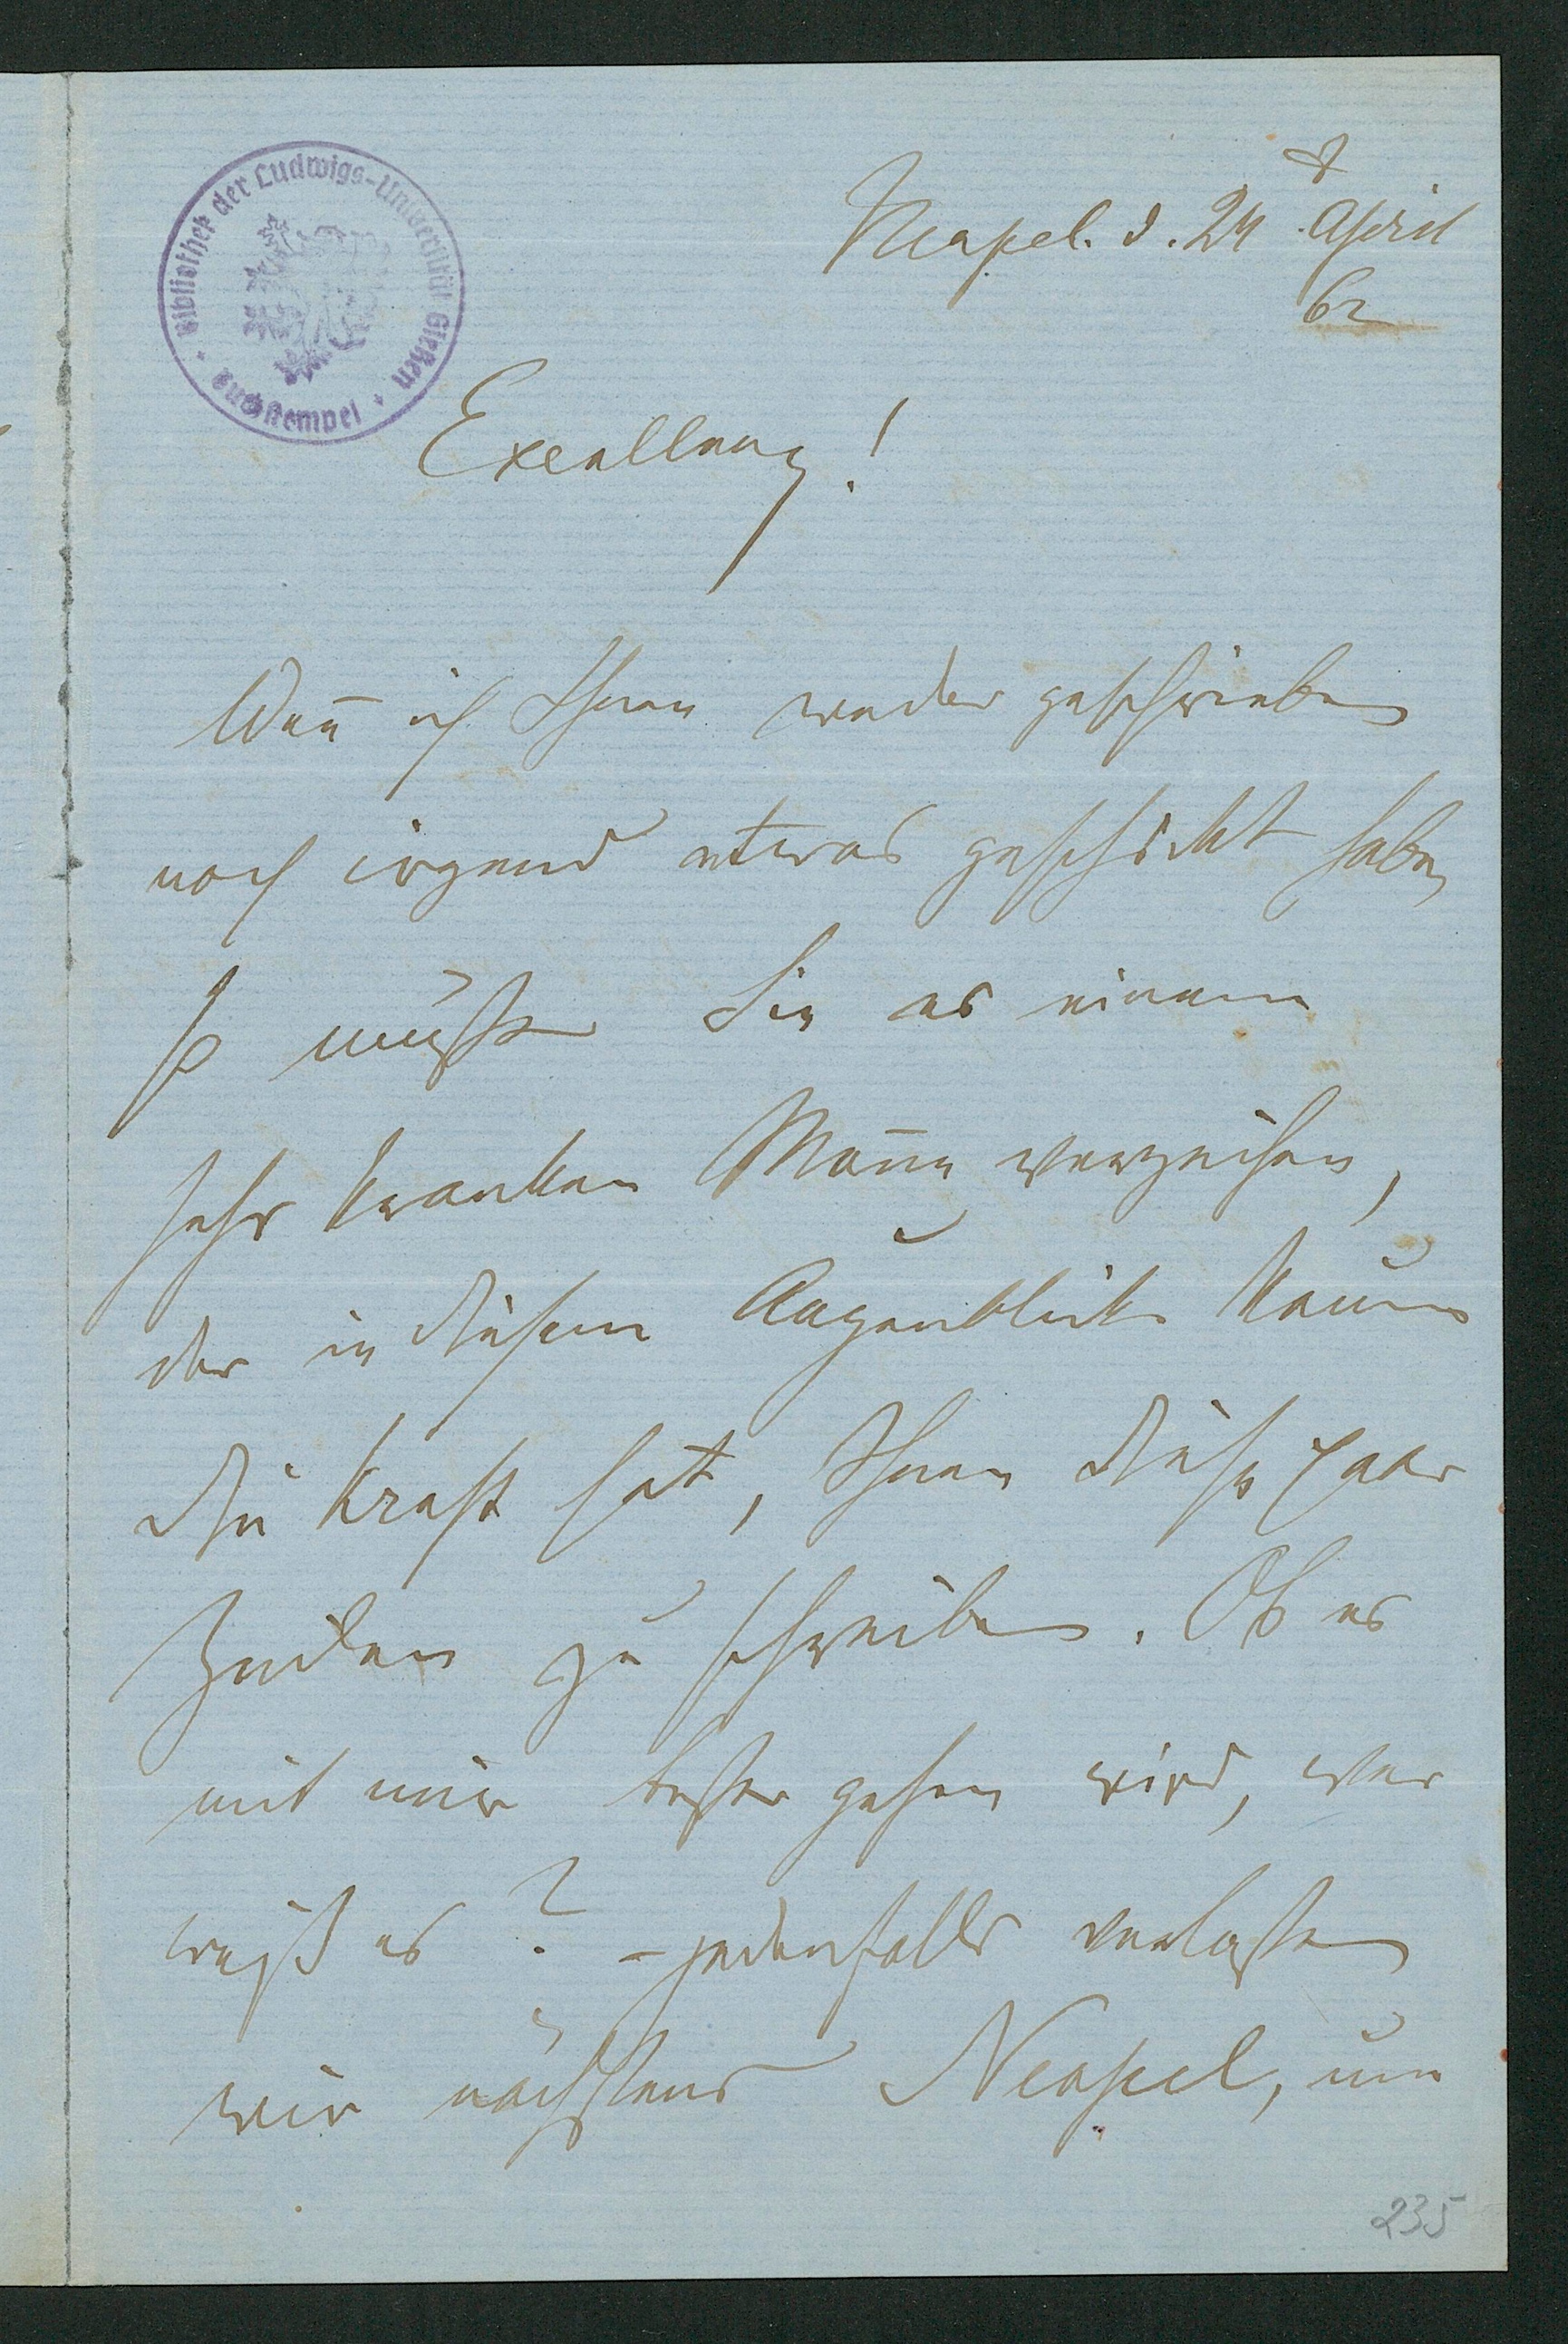 Bibliothek der Ludwigs-Universität Gießen
Buchstempel
Neapel. d. 24 April
62
Excellenz!
Wen̄ ich Ihnen weder geschrieben
noch irgend etwas geschickt habe,
so müssen Sie es einem
sehr kranken Man̄e verzeihen,
der in diesem Augenblicke kaum
die Kraft hat, Ihnen diese paar
Zeilen zu schreiben. Ob es
mit mir besser gehen wird, wer
weiß es? – jedenfalls verlassen
wir nächstens Neapel, um
235